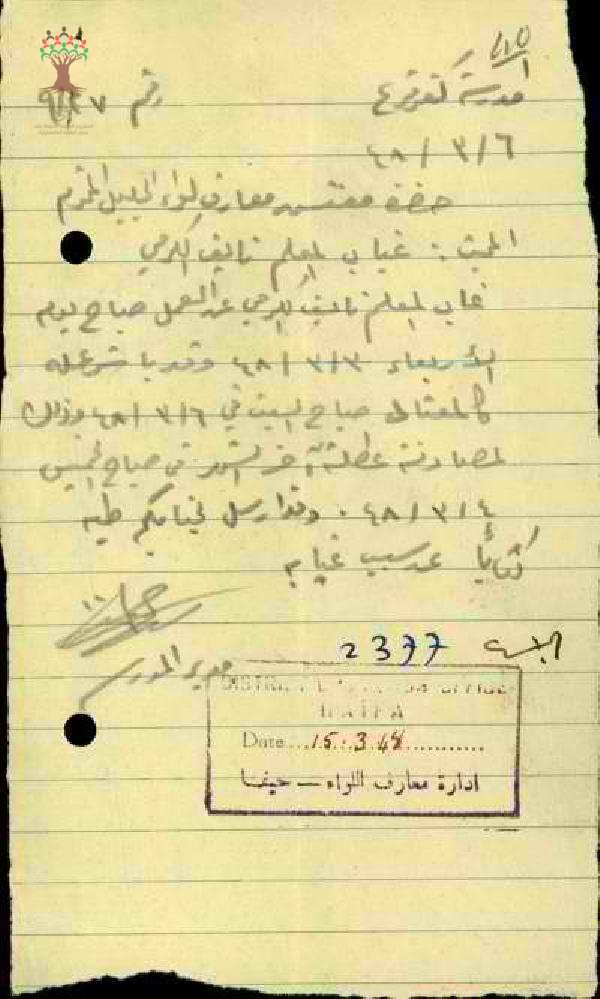 مدرسة كفر قرع
رقم ٩/٤٧
٤٨/٣/٦
حضرة مفتش معارف لواء الجليل المحترم
المبحث : غياب المعلم نايف الكرمي
غاب المعلم نايف الكرمي عن العمل صباح يوم
الأربعاء ٤٨/٣/٣ وقد باشر عمله
كالمعتاد صباح السبت في ٤٨/٣/٦ وذلك
لمصادفة عطلة آخر الشهر في صباح الخميس
٤٨/٣/٤ . وقد ارسل لجنابكم طيه
كتابا عن سبب غيابه
مدير المدرسة
2377
DISTRICT EDUCATION OFFICE
HAIFA
Date...15.3.48............
ادارة معارف اللواء — حيفا